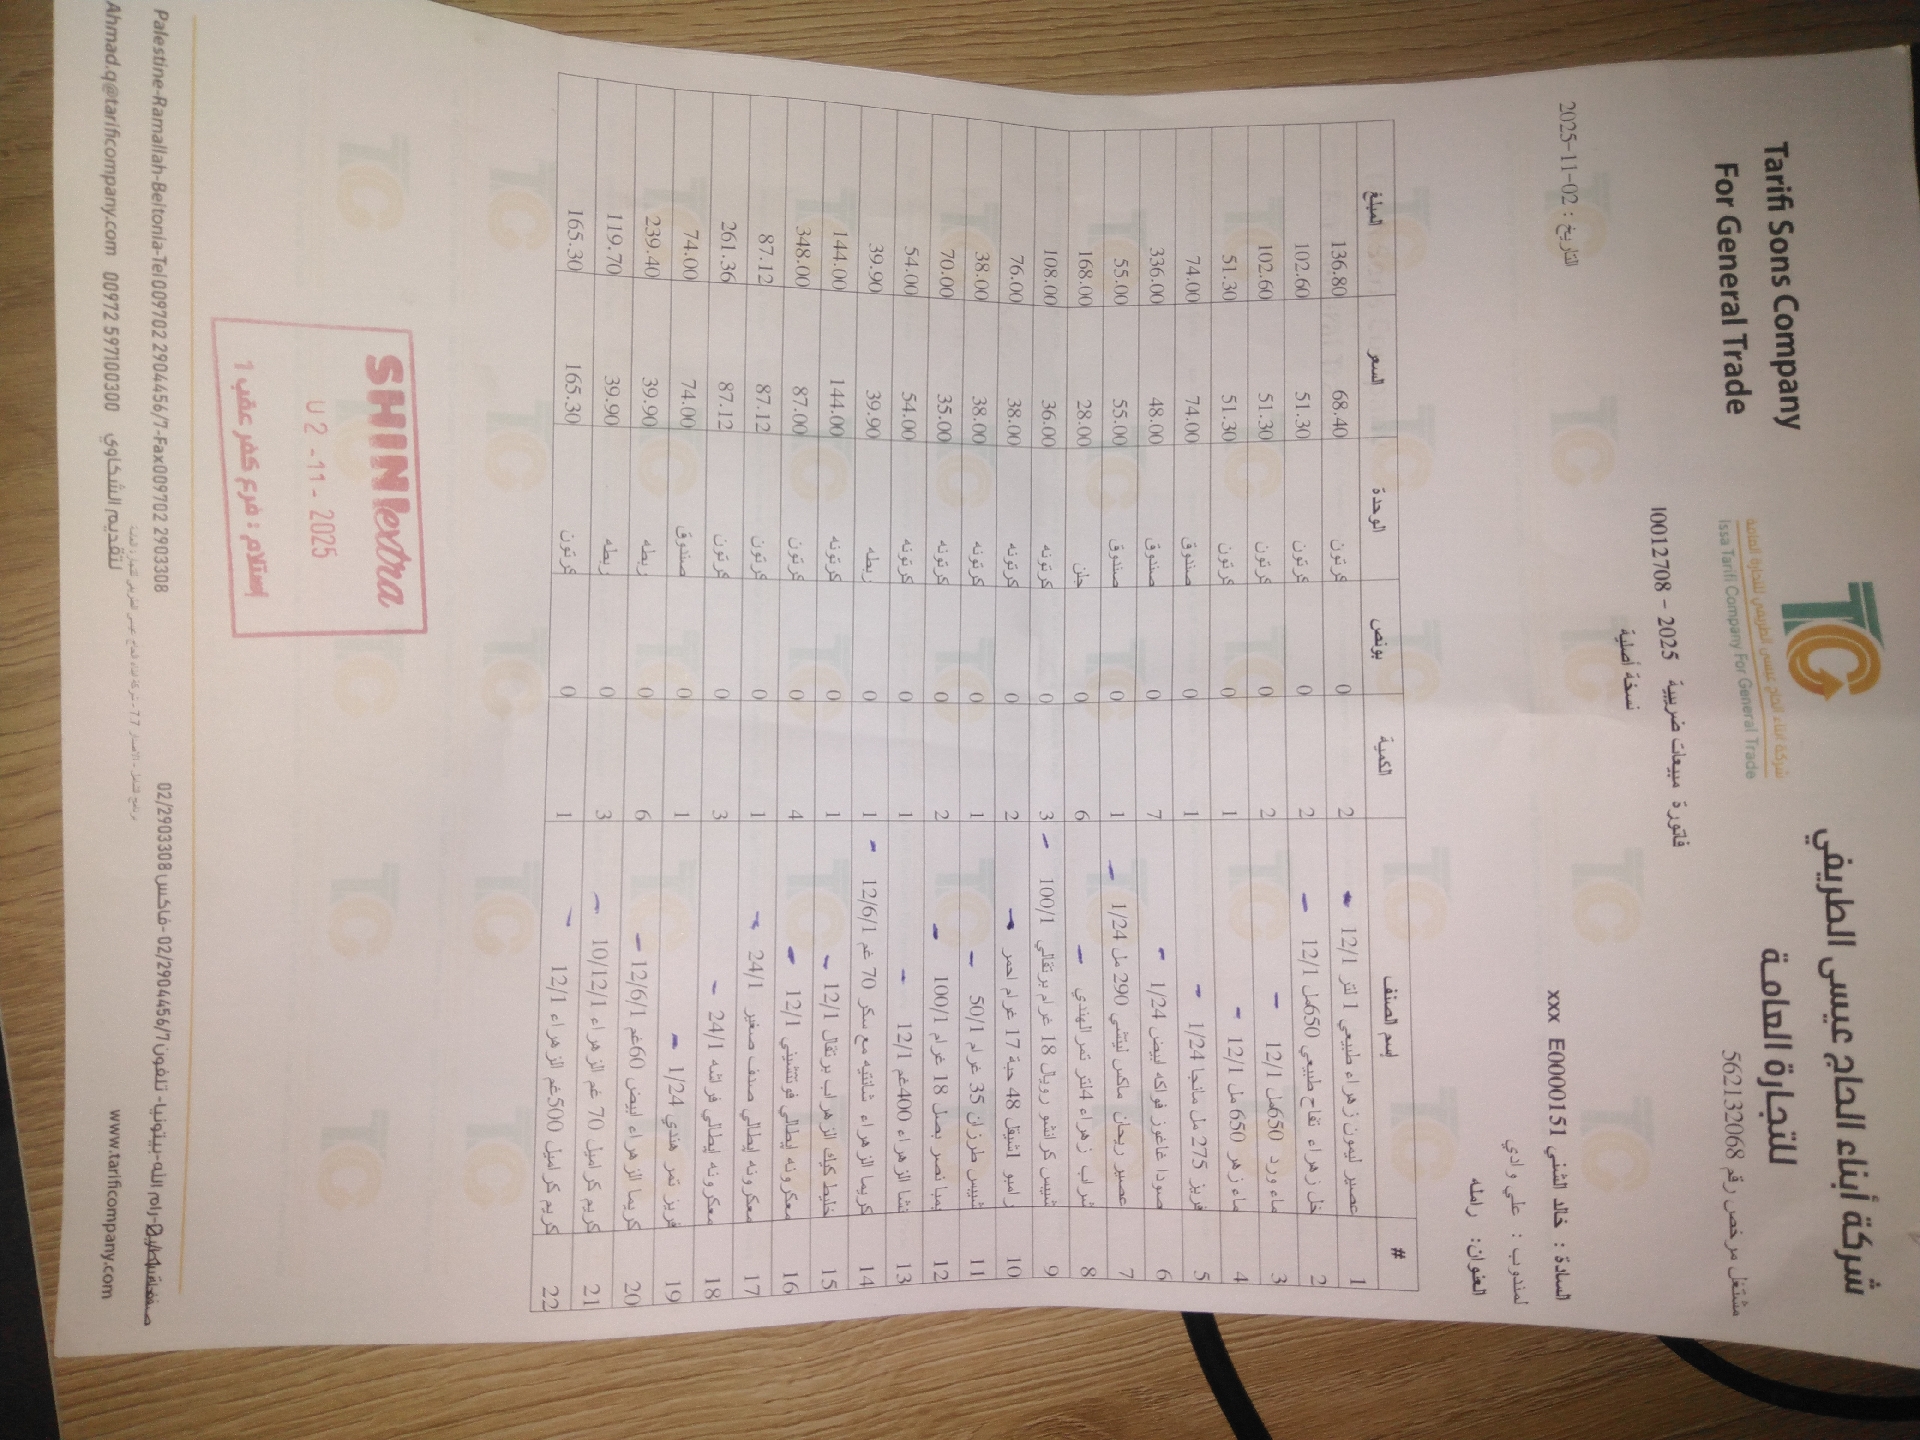 Tarifi Sons Company
For General Trade
شركة أبناء الحاج عيسى الطريفي للتجارة العامة
Issa Tarifi Company For General Trade
شركة أبناء الحاج عيسى الطريفي
للتجارة العامة
مشتغل مرخص رقم 562132068
فاتورة مبيعات ضريبية 2025 - 10012708
نسخة أصلية
التاريخ : 02-11-2025
السادة : خالد الشني xxx E0000151
لمندوب : علي وادي
العنوان: رامله
# إسم الصنف الكمية بونص الوحدة السعر المبلغ
1 عصير ليمون زهراء طبيعي 1 لتر 12/1 2 0 كرتون 68.40 136.80
2 خل زهراء تفاح طبيعي 650مل 12/1 2 0 كرتون 51.30 102.60
3 ماء ورد 650مل 12/1 2 0 كرتون 51.30 102.60
4 ماء زهر 650 مل 12/1 1 0 كرتون 51.30 51.30
5 فريز 275 مل مانجا 1/24 1 0 صندوق 74.00 74.00
6 صودا غاغوز فواكه ابيض 1/24 7 0 صندوق 48.00 336.00
7 عصير ريحان ماكس ليتشي 290 مل 1/24 1 0 صندوق 55.00 55.00
8 شراب زهراء 4لتر تمر الهندي 6 0 جلن 28.00 168.00
9 شيبس كرانشو رويال 18 غرام برتقالي 100/1 3 0 كرتونه 36.00 108.00
10 رامبو اشيقل 48 حبة 17 غرام احمر 2 0 كرتونه 38.00 76.00
11 شيبس طرزان 35 غرام 50/1 1 0 كرتونه 38.00 38.00
12 بمبا نصر بصل 18 غرام 100/1 2 0 كرتونه 35.00 70.00
13 نشا الزهراء 400غم 12/1 1 0 كرتونه 54.00 54.00
14 كريما الزهراء شانتيه مع سكر 70 غم 12/6/1 1 0 ربطه 39.90 39.90
15 خليط كيك الزهراء برتقال 12/1 1 0 كرتونه 144.00 144.00
16 معكرونه ايطالي فوتتشيني 12/1 4 0 كرتون 87.00 348.00
17 معكرونه ايطالي صدف صغير 24/1 1 0 كرتون 87.12 87.12
18 معكرونه ايطالي فراشه 24/1 3 0 كرتون 87.12 261.36
19 فريز تمر هندي 1/24 1 0 صندوق 74.00 74.00
20 كريما الزهراء ابيض 60غم 12/6/1 6 0 ربطه 39.90 239.40
21 كريم كراميل 70 غم الزهراء 10/12/1 3 0 ربطه 39.90 119.70
22 كريم كراميل 500غم الزهراء 12/1 1 0 كرتون 165.30 165.30
SHINIextra
02 -11- 2025
إستلام : فرع كفر عقب 1
Palestine-Ramallah-Beitonia-Tel 009702 2904456/7-Fax009702 2903308
رام الله-بيتونيا- تلفون 02/2904456/7 -فاكس 02/2903308
Ahmad.q@tarificompany.com 00972 597100300 لتقديم الشكاوي
www.tarificompany.com